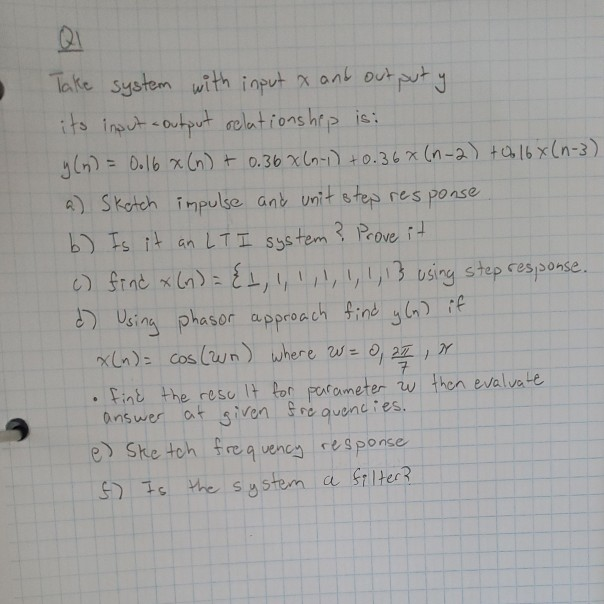 Q1
Take system with input x and output y
its input-output relationship is:
y(n) = 0.16 x(n) + 0.36 x(n-1) + 0.36 x(n-2) + 0.16 x(n-3)
a) Sketch impulse and unit step response
b) Is it an LTI system? Prove it
c) find x(n) = {1, 1, 1, 1, 1, 1, 1} using step response.
d) Using phasor approach find y(n) if
x(n) = cos(wn) where w = 0, 2π/7, π
• find the result for parameter w then evaluate
answer at given frequencies.
e) Sketch frequency response
f) Is the system a filter?